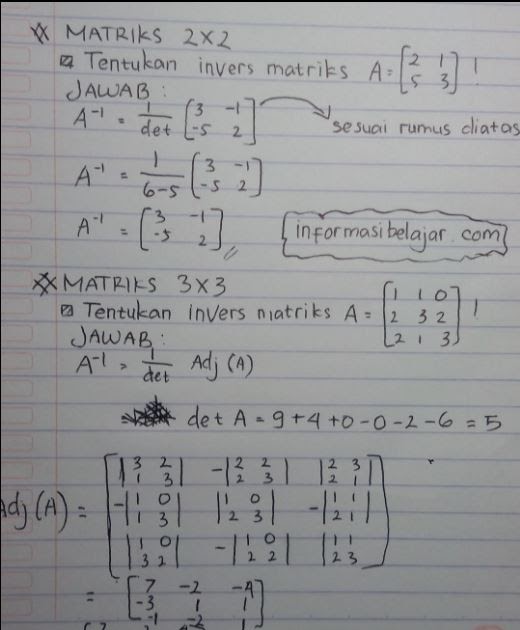 MATRIKS 2x2
Tentukan invers matriks A = [2 1
5 3] !
JAWAB :
A⁻¹ = 1/det [3 -1
-5 2] → sesuai rumus diatas
A⁻¹ = 1/6-5 [3 -1
-5 2]
A⁻¹ = [3 -1
-5 2] //
informasibelajar.com
MATRIKS 3x3
Tentukan invers matriks A = [1 1 0
2 3 2
2 1 3] !
JAWAB :
A⁻¹ = 1/det Adj (A)
det A = 9+4+0-0-2-6 = 5
Adj (A) = [|3 2
1 3| -|2 2
2 3| |2 3
2 1|
-|1 0
1 3| |1 0
2 3| -|1 1
2 1|
|1 0
3 2| -|1 0
2 2| |1 1
2 3|]
= [7 -2 -4
-3 1 1
-1 -2 1]